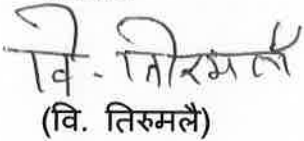 वि. तिरुमलै
(वि. तिरुमलै)